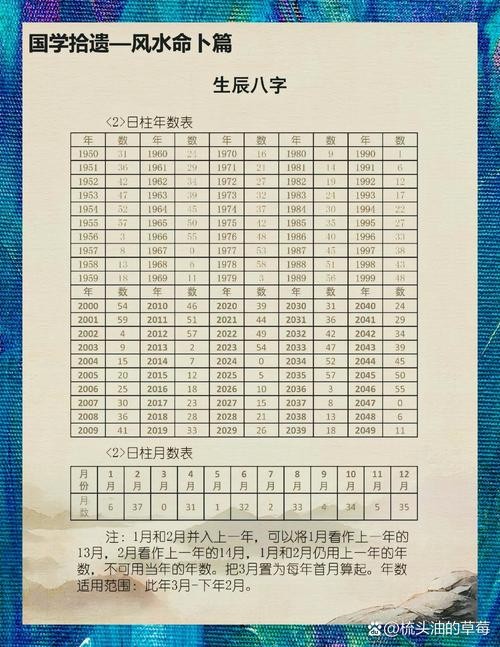 国学拾遗—风水命卜篇
生辰八字
<2>日柱年数表
年 数 年 数 年 数 年 数 年 数
1950 31 1960 24 1970 16 1980 9 1990 1
1951 36 1961 29 1971 21 1981 14 1991 6
1952 42 1962 34 1972 27 1982 19 1992 12
1953 47 1963 39 1973 32 1983 24 1993 17
1954 52 1964 45 1974 37 1984 30 1994 22
1955 57 1965 50 1975 42 1985 35 1995 27
1956 3 1966 55 1976 48 1986 40 1996 33
1957 8 1967 0 1977 53 1987 45 1997 38
1958 13 1968 6 1978 58 1988 51 1998 43
1959 18 1969 11 1979 3 1989 56 1999 48
年 数 年 数 年 数 年 数 年 数
2000 54 2010 46 2020 39 2030 31 2040 24
2001 59 2011 51 2021 44 2031 36 2041 29
2002 4 2012 57 2022 49 2032 42 2042 34
2003 9 2013 2 2023 54 2033 47 2043 39
2004 15 2014 7 2024 0 2034 52 2044 45
2005 20 2015 12 2025 5 2035 57 2045 50
2006 25 2016 18 2026 10 2036 3 2046 55
2007 30 2017 23 2027 15 2037 8 2047 0
2008 36 2018 28 2028 21 2038 13 2048 6
2009 41 2019 33 2029 26 2039 18 2049 11
<2>日柱月数表
月份 1月 2月 3月 4月 5月 6月 7月 8月 9月 10月 11月 12月
月数 6 37 0 31 1 32 2 33 4 34 5 35
注：1月和2月并入上一年，可以将1月看作上一年的
13月，2月看作上一年的14月，1月和2月仍用上一年的年
数，不可用当年的年数。把3月置为每年首月算起。年数
适用范围：此年3月-下年2月。
百家号@梳头油的草莓